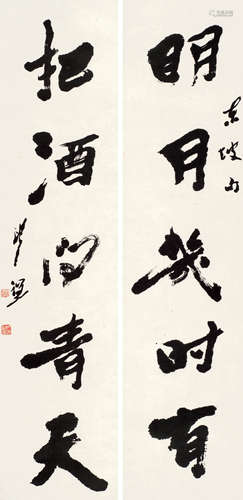 东坡句
明月幾时有
把酒问青天